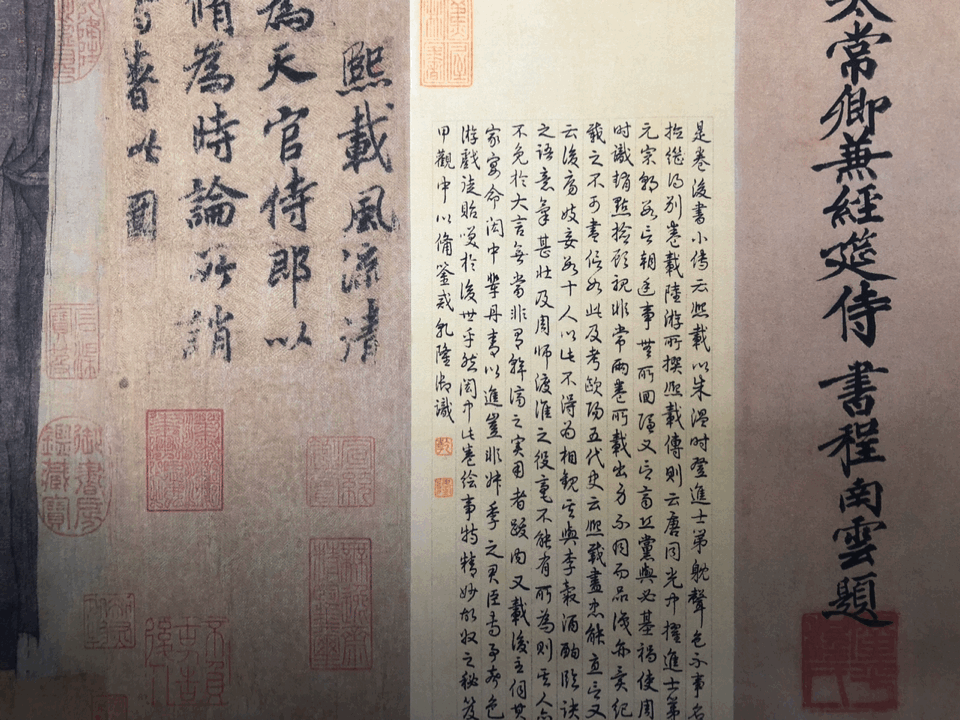 太常卿兼經筵侍書程南雲題
是卷後書小傳云熙載以朱溫時登進士第躭聲色不事名
拾繼得別卷載陸游所撰熙載傳則云唐同光中擢進士第
元宗朝數言朝廷事無所回隱又言齊丘黨與必基禍使周
時識趙點檢顧視非常兩卷所載出多不同而品隲亦異紀
載之不可盡信如此及考歐陽五代史云熙載盡忠能直言又
云後房妓妾數十人以此不得為相觀其與李穀酒酣臨訣
之語意氣甚壯及周師渡淮之役毫不能有所為則其人亦
不免於大言無當非有幹濟之實用者跋內又載後主伺其
家宴命閎中輩丹青以進豈非叔季之君臣專事奢色
游戲徒貽笑於後世乎然閎中此卷繪事特精妙故收之秘笈
甲觀中以備鑒戒乾隆御識
熙載風流清
為天官侍郎以
脩為時論所誚
著此圖
御書房鑑藏寶